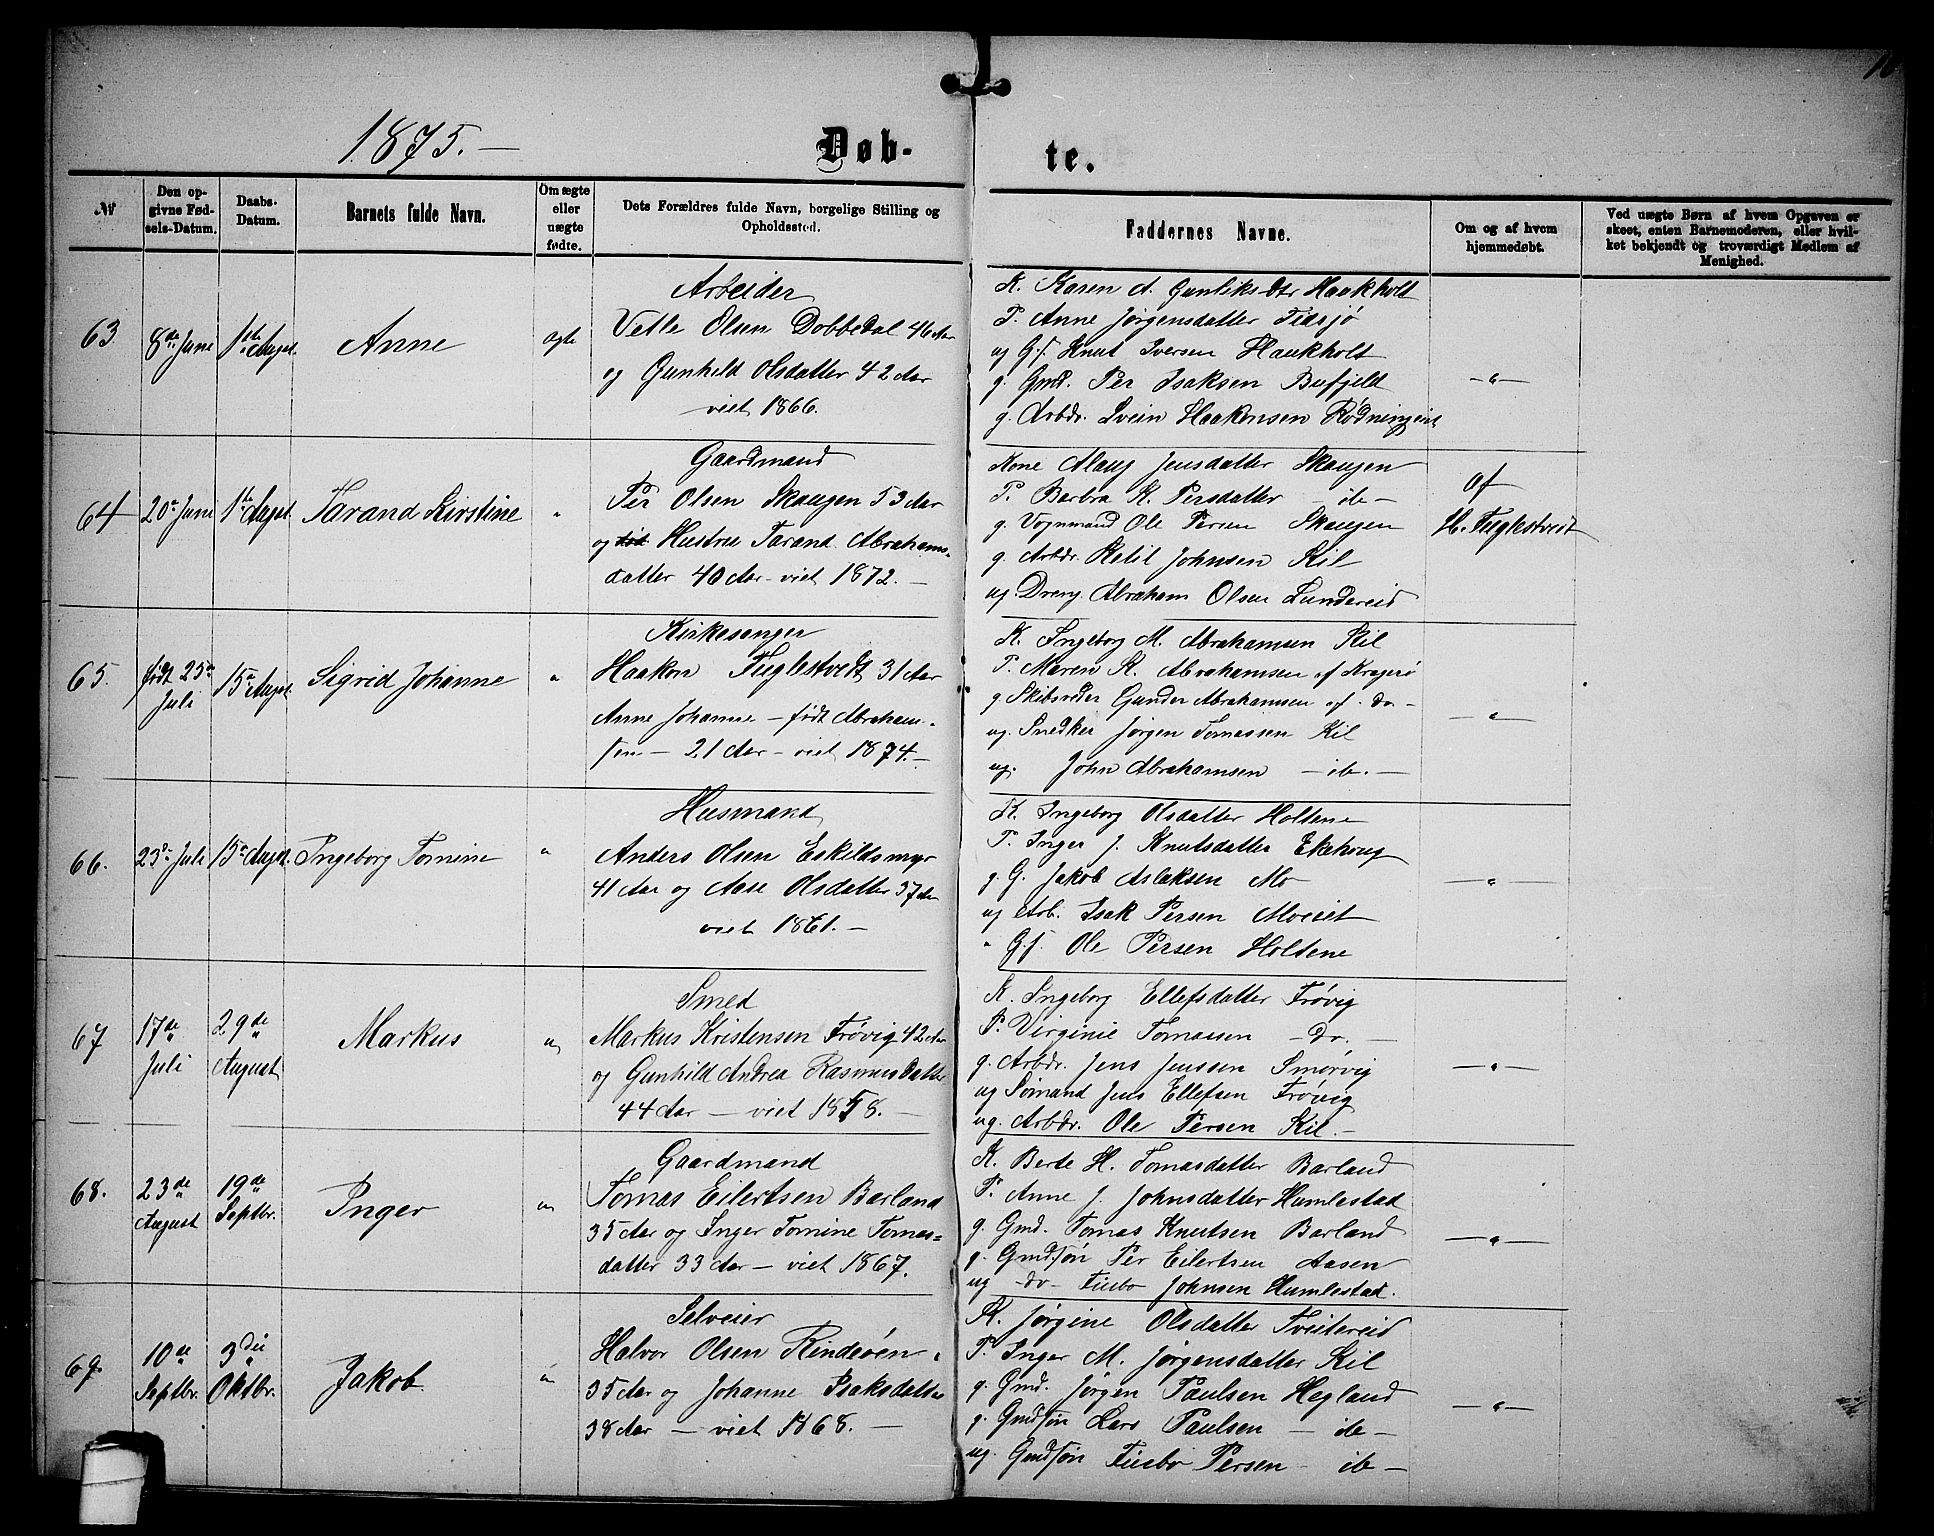 1875.—
Døb- te.
№
Den opgivne Fødsels-Datum.
Daabs-Datum.
Barnets fulde Navn.
Om ægte eller uægte fødte.
Dets Forældres fulde Navn, borgelige Stilling og Opholdssted.
Faddernes Navne.
Om og af hvem hjemmedøbt.
Ved uægte Børn af hvem Opgaven er skeet, enten Barnemoderen, eller hvilket bekjendt og troværdigt Medlem af Menighed.
63 8de Juni 1ste Augst. Anne ægte
Arbeider
Vetle Olsen Dobbedal 46 Aar
og Gunhild Olsdatter 42 Aar
viet 1866.
K. Karen A. Gunliksdtr Haukholt
P. Anne Jørgensdatter
og G.f. Knut Iversen Haukholt
g. Gmd. Per Isaksen Bufjeld
g. Arbdr. Svein Haakensen
—"—
64 20de Juni 1ste Augst. Tarand Kirstine "
Gaardmand
Per Olsen Skaugen 53 Aar
og Hustru Tarand Abrahams-
datter 40 Aar – viet 1872. —
Kone Alaug Jensdatter Skaugen
P. Barbra K. Persdatter — ib —
g. Vognmand Ole Persen Skaugen
g. Arbdr. Ketil Johnsen Kil
ug. Dreng Abraham Olsen Lundereid
Af
H. Fuglestvedt
65. født 25de Juli 15de Augst. Sigrid Johanne "
Kirkesanger
Haakon Fuglestvedt 31 Aar
Anne Johanne – født Abraham-
sen — 21 Aar – viet 1874. —
K. Ingeborg M. Abrahamsen Kil
P. Maren K. Abrahamsen af Kragerø
g Skibsreder Gunder Abrahamsen af do —
ug. Snedker Jørgen Tomassen Kil
ug. John Abrahamsen — ib. —
—"—
66. 23de Juli 15de Augst. Ingeborg Tomine "
Husmand
Anders Olsen Eskildsmyr
41 Aar og Aase Olsdatter 37 Aar
viet 1861. —
K. Ingeborg Olsdatter Holtene
P. Inger J. Knutsdatter Ekehoug
g. G. Jakob Aslaksen Mo
ug Arb. Isak Persen Moeiet
" G.f. Ole Persen Holtene
—"—
67 17de Juli 29de August Markus "
Smed
Markus Kristensen Frøvig 42 Aar
og Gunhild Andrea Rasmusdatter
44 Aar — viet 1858. —
K. Ingeborg Ellefsdatter Frøvig
P. Virginie Tomassen — Do. —
g. Arbdr. Jens Jenssen Smørvig
ug Sømand Jens Ellefsen Frøvig
ug. Arbdr. Ole Persen Kil. —
—"—
68. 23de August 19de Septbr. Inger "
Gaardmand
Tomas Eilertsen Barland
35 Aar og Inger Tomine Tomas-
datter 33 Aar — viet 1867.
K. Berte H. Tomasdatter Barland
P. Anne J. Johnsdatter Humlestad
g. Gmd. Tomas Knutsen Barland
g. Gmdsøn Per Eilertsen Aasen
ug — do — Tisbo Johnsen Humlestad.
—"—
69. 10de Septbr. 3die Oktbr. Jakob "
Selveier
Halvor Olsen Rindeøen
35 Aar og Johanne Isaksdatter
38 Aar — viet 1868. —
K. Jørgine Olsdatter Tveitereid
P. Inger M. Jørgensdatter Kil
g. Gmd. Jørgen Paulsen Hegland
g. Gmdsøn Lars Paulsen — ib —
ug. Gmdsøn Tisbo Persen — ib —
—"—